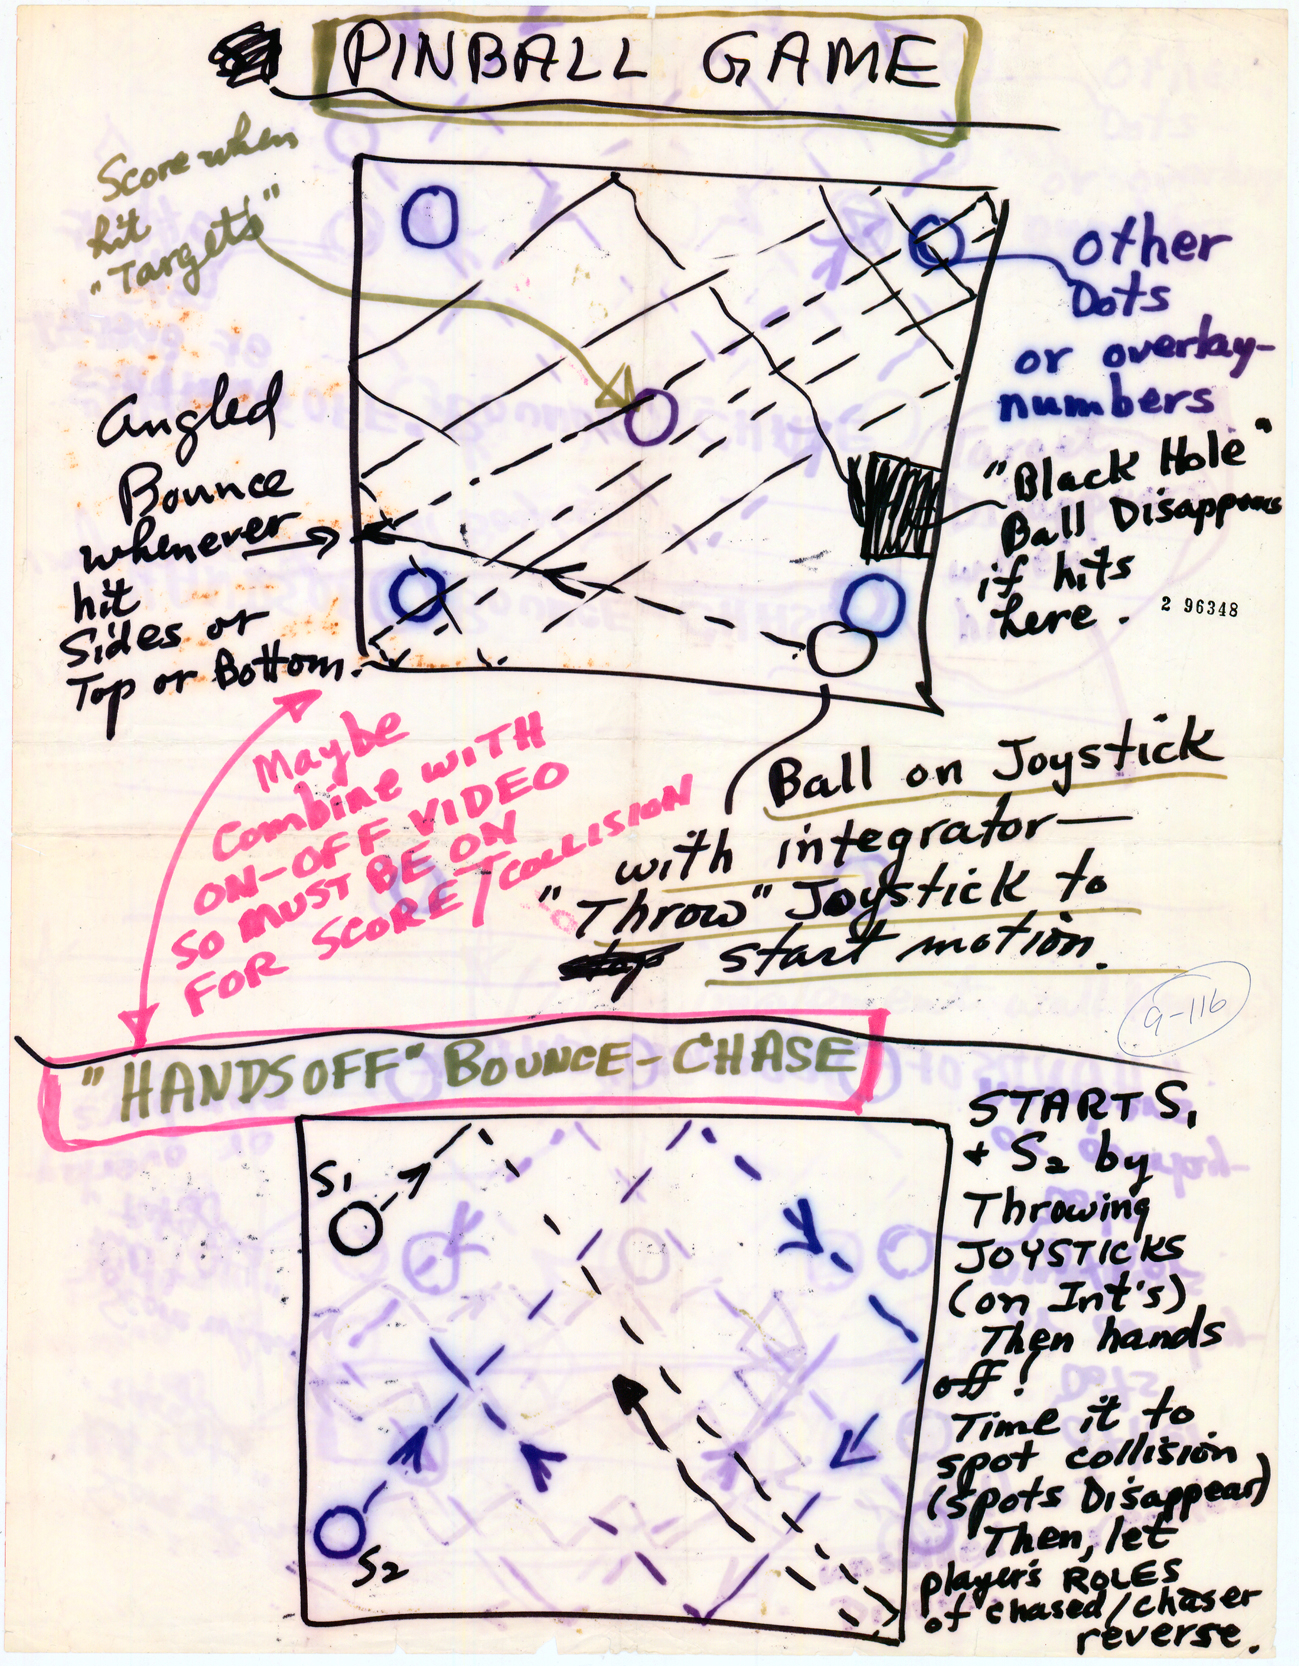 PINBALL GAME
Score when
hit
"Targets"
other
Dots
or overlay-
numbers
"Black Hole"
Ball Disappears
if hits
here.
2 96348
Angled
Bounce
whenever
hit
Sides or
Top or Bottom.
Maybe
Combine WITH
ON-OFF VIDEO
SO MUST BE ON
FOR SCORE/COLLISION
Ball on Joystick
with integrator—
"Throw" Joystick to
start motion.
9-116
"HANDSOFF" BOUNCE-CHASE
S1
S2
START S1
+ S2 by
Throwing
JOYSTICKS
(on Int's)
Then hands
off!
Time it to
spot collision
(spots Disappear)
Then, let
player's ROLES
of chased/chaser
reverse.